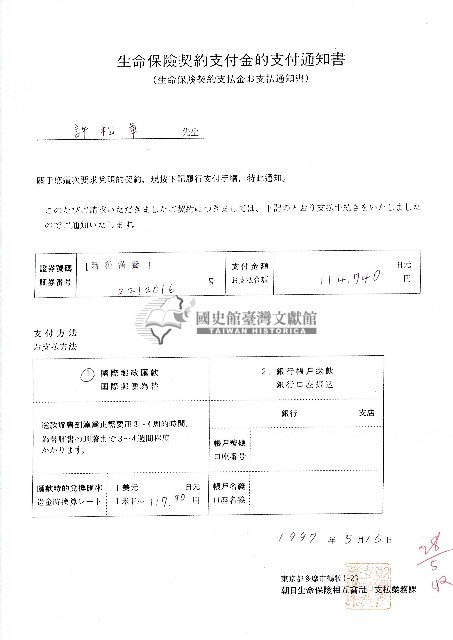 生命保險契約支付金的支付通知書
(生命保険契約支払金お支払通知書)
許松筆 先生
關于您這次要求兌領的契約，現按下記履行支付手續，特此通知。
このたびご請求いただきましたご契約につきましては、下記のとおり支払手続きをいたしました
のでご通知いたします。
證券號碼
証券番号
2212016 号
支付金額
お支払金額
114,740
日元
円
國史館臺灣文獻館
TAIWAN HISTORICA
支付方法
お支払方法
① 國際郵政匯款
国際郵便為替
匯款時的兌換匯率
送金時換算レート
1美元 日元
1米ドル 117.90 円
2. 銀行帳戶匯款
銀行口座振込
銀行 支店
帳戶號碼
口座番号
帳戶名義
口座名義
1997 年 5月16日
朝日生命保險相互會社 支払業務課
28/5